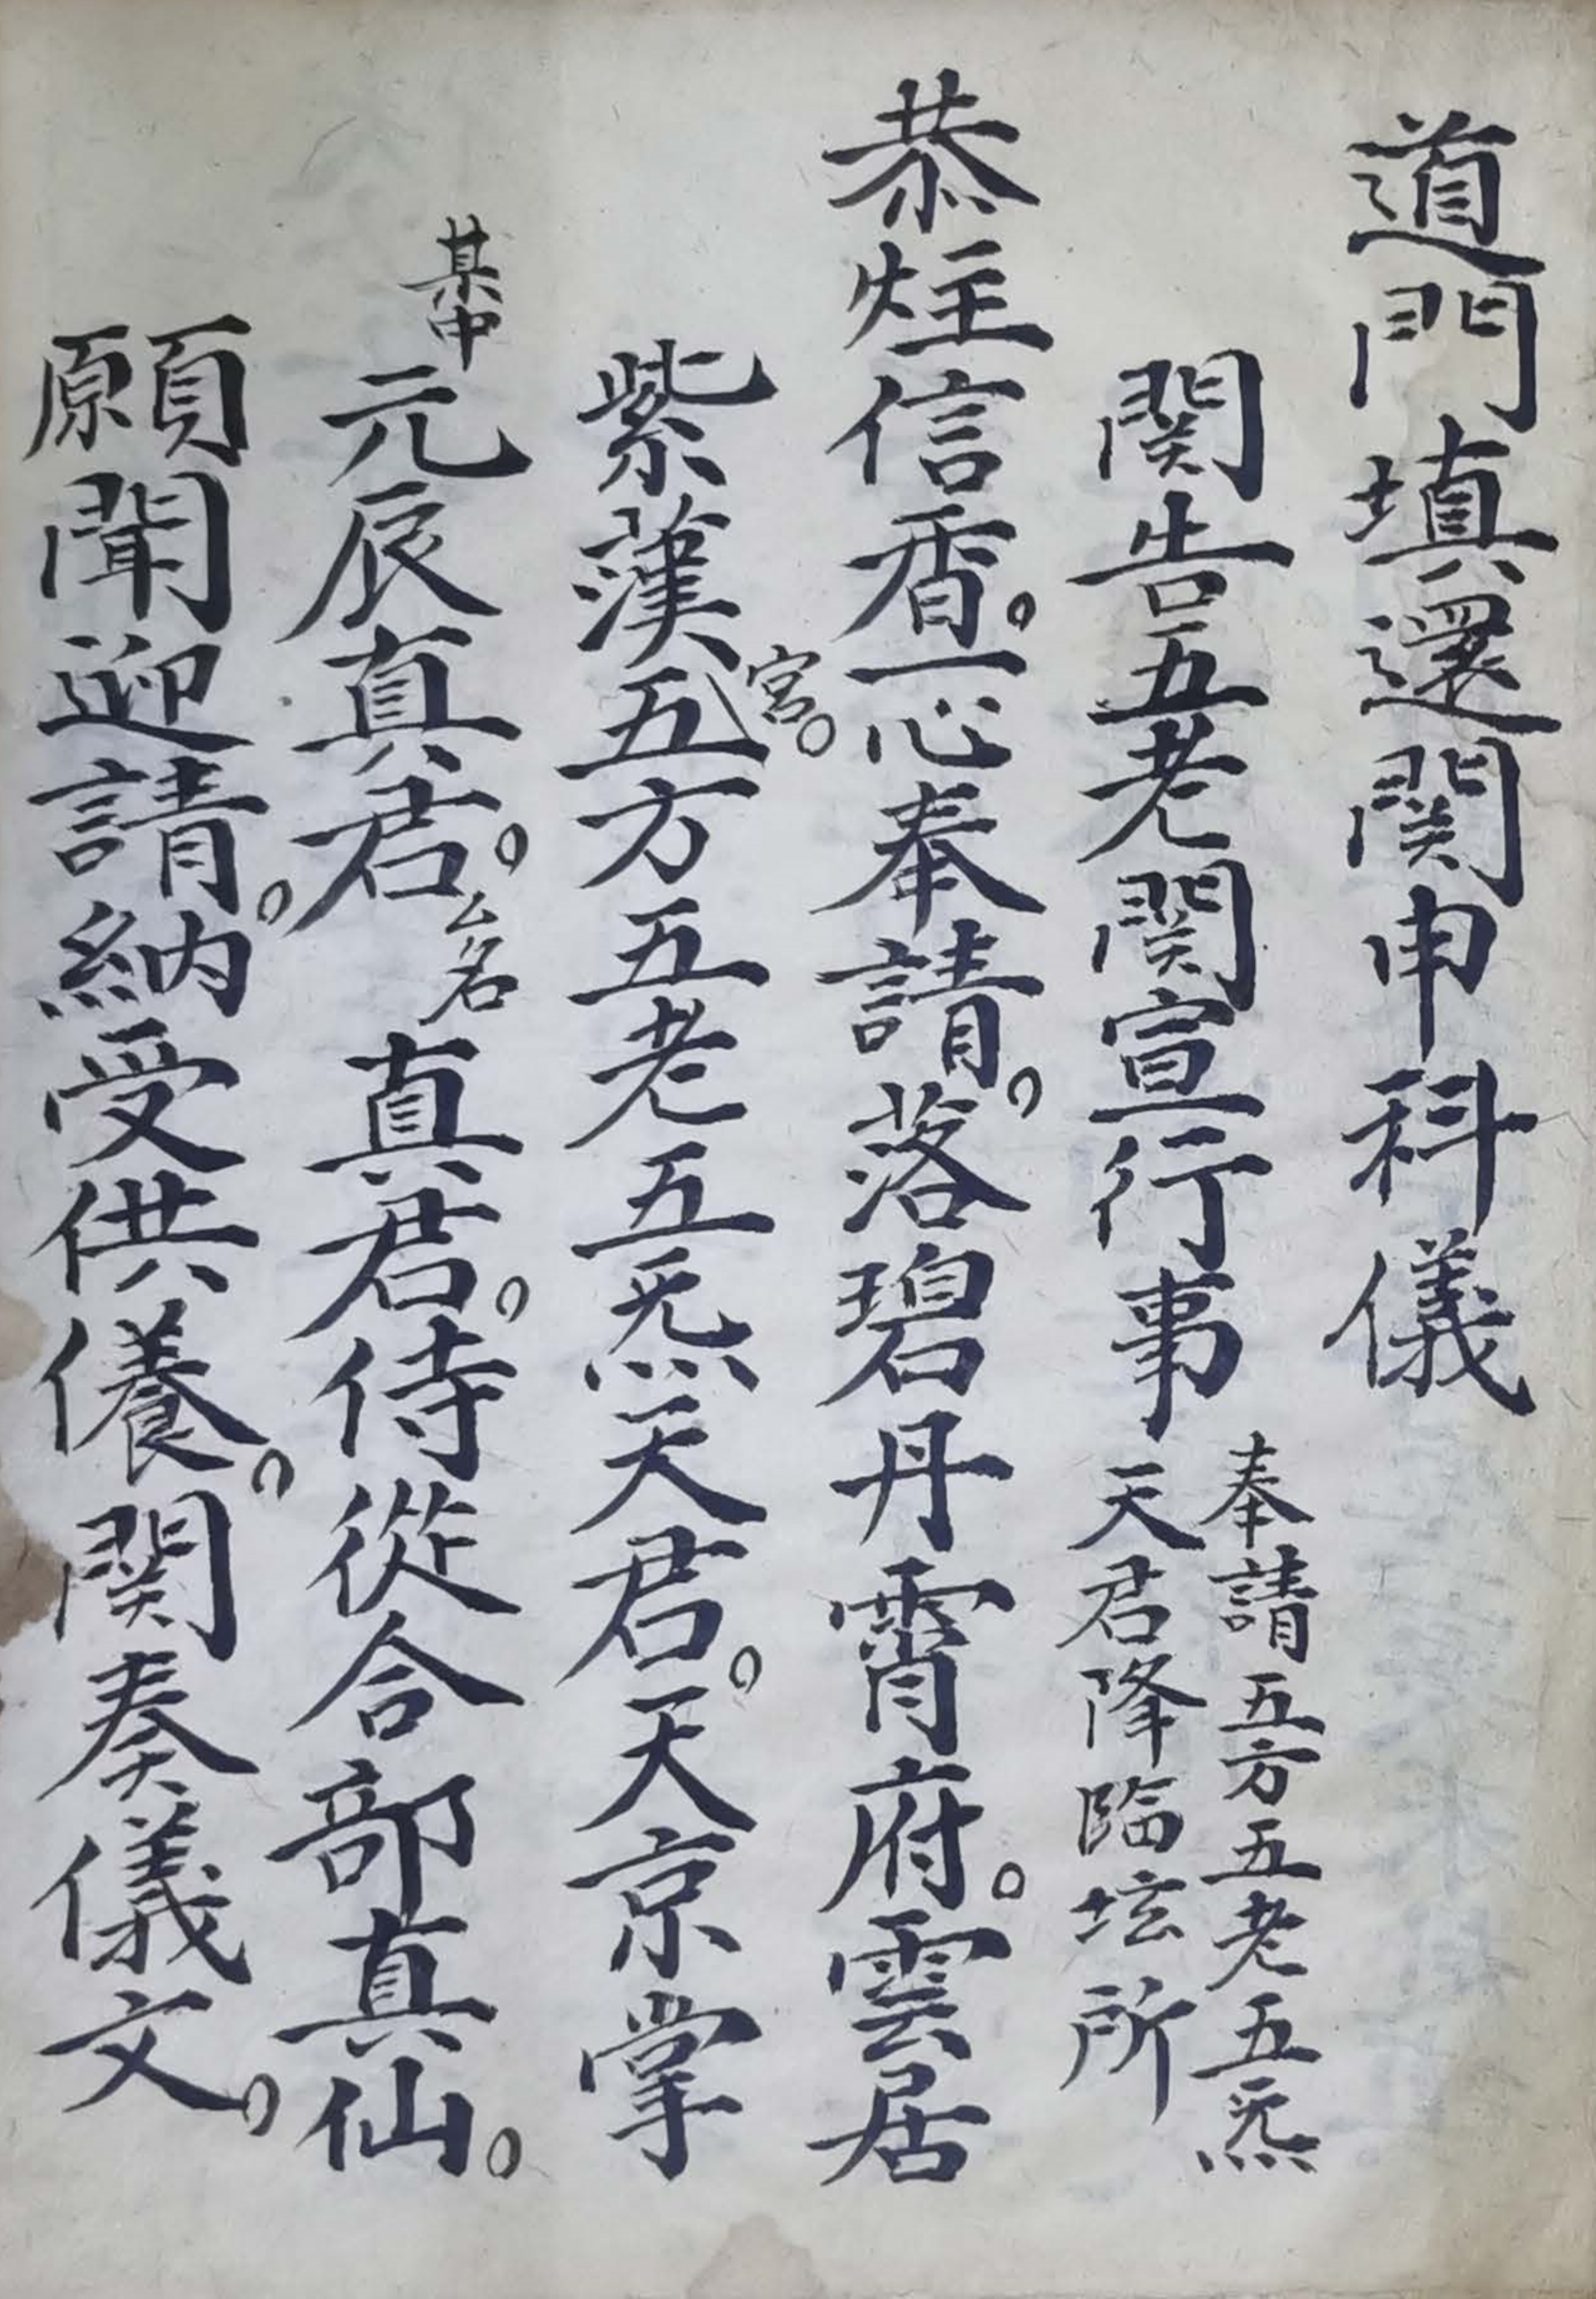 道門填還関申科儀
関告五老関宣行事
奉請五方五老五炁
天君降臨坛所
恭炷信香。一心奉請。落碧丹霄府。雲居
紫漢宮。五方五老五炁天君。天京掌
某中元辰真君。厶名真君。侍從合部真仙。
願聞迎請。納受供儀。関奏儀文。